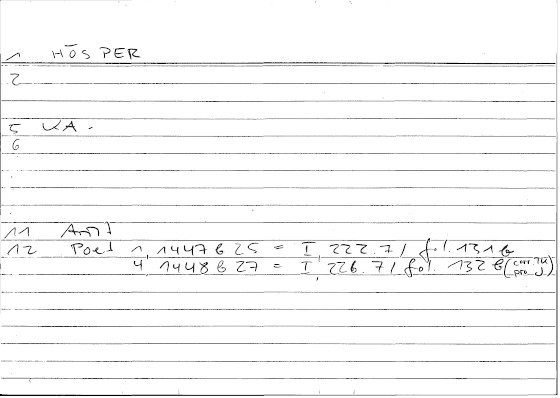 1 HŌSPER
2
5 VA.
6
11 Arist
12 Poet 1, 1447 b 25 = I, 222.7 / fol. 131b
4, 1448 b 27 = I, 226.7 / fol. 132 b (corr.
pro